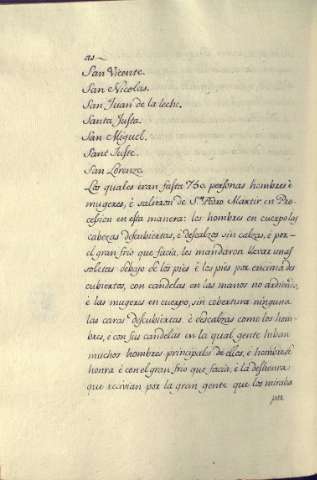 as
San Vicente.
San Nicolas.
San Juan de la leche.
Santa Justa.
San Miguel.
Sant Juste.
San Lorenzo.
Los quales eran fasta 750. personas hombres è
mugeres, è salieron de Sn. Pedro Martir en Pro-
cession en esta manera: los hombres en cuerpo las
cabezas descubiertas, è descalzos sin calzas, è por
el gran frio que facia, les mandaron llevar unas
soletas debajo de los pies è los pies por encima des
cubiertos, con candelas en las manos no ardiendo,
è las mugeres en cuerpo, sin cobertura ninguna
las caras descubiertas, è descalzas como los hom-
bres, è con sus candelas en la qual gente iuban
muchos hombres principales de ellos, è hombres de
honra è con el gran frio que facia, è la deshonra
que recivian por la gran gente que los miraba
por